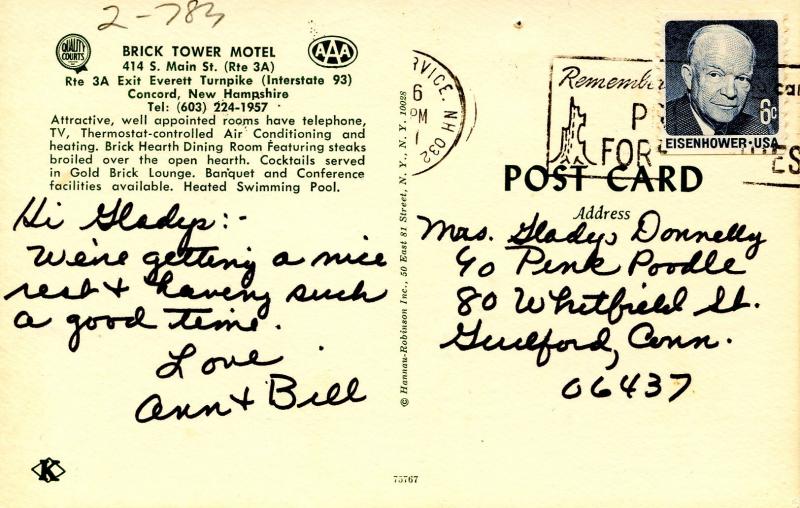 2-783
QUALITY COURTS
BRICK TOWER MOTEL
AAA
414 S. Main St. (Rte 3A)
Rte 3A Exit Everett Turnpike (Interstate 93)
Concord, New Hampshire
Tel: (603) 224-1957
Attractive, well appointed rooms have telephone,
TV, Thermostat-controlled Air Conditioning and
heating. Brick Hearth Dining Room featuring steaks
broiled over the open hearth. Cocktails served
in Gold Brick Lounge. Banquet and Conference
facilities available. Heated Swimming Pool.
Hi Gladys:-
We're getting a nice
rest & having such
a good time.
Love
Ann & Bill
K
© Hannau-Robinson Inc., 50 East 81 Street, N. Y., N. Y. 10028
75767
RVICE. NH 032
6
PM
Remember
P
FOR
ES
6c
EISENHOWER·USA
POST CARD
Address
Mrs. Gladys Donnelly
℅ Pink Poodle
80 Whitfield St.
Guilford, Conn.
06437